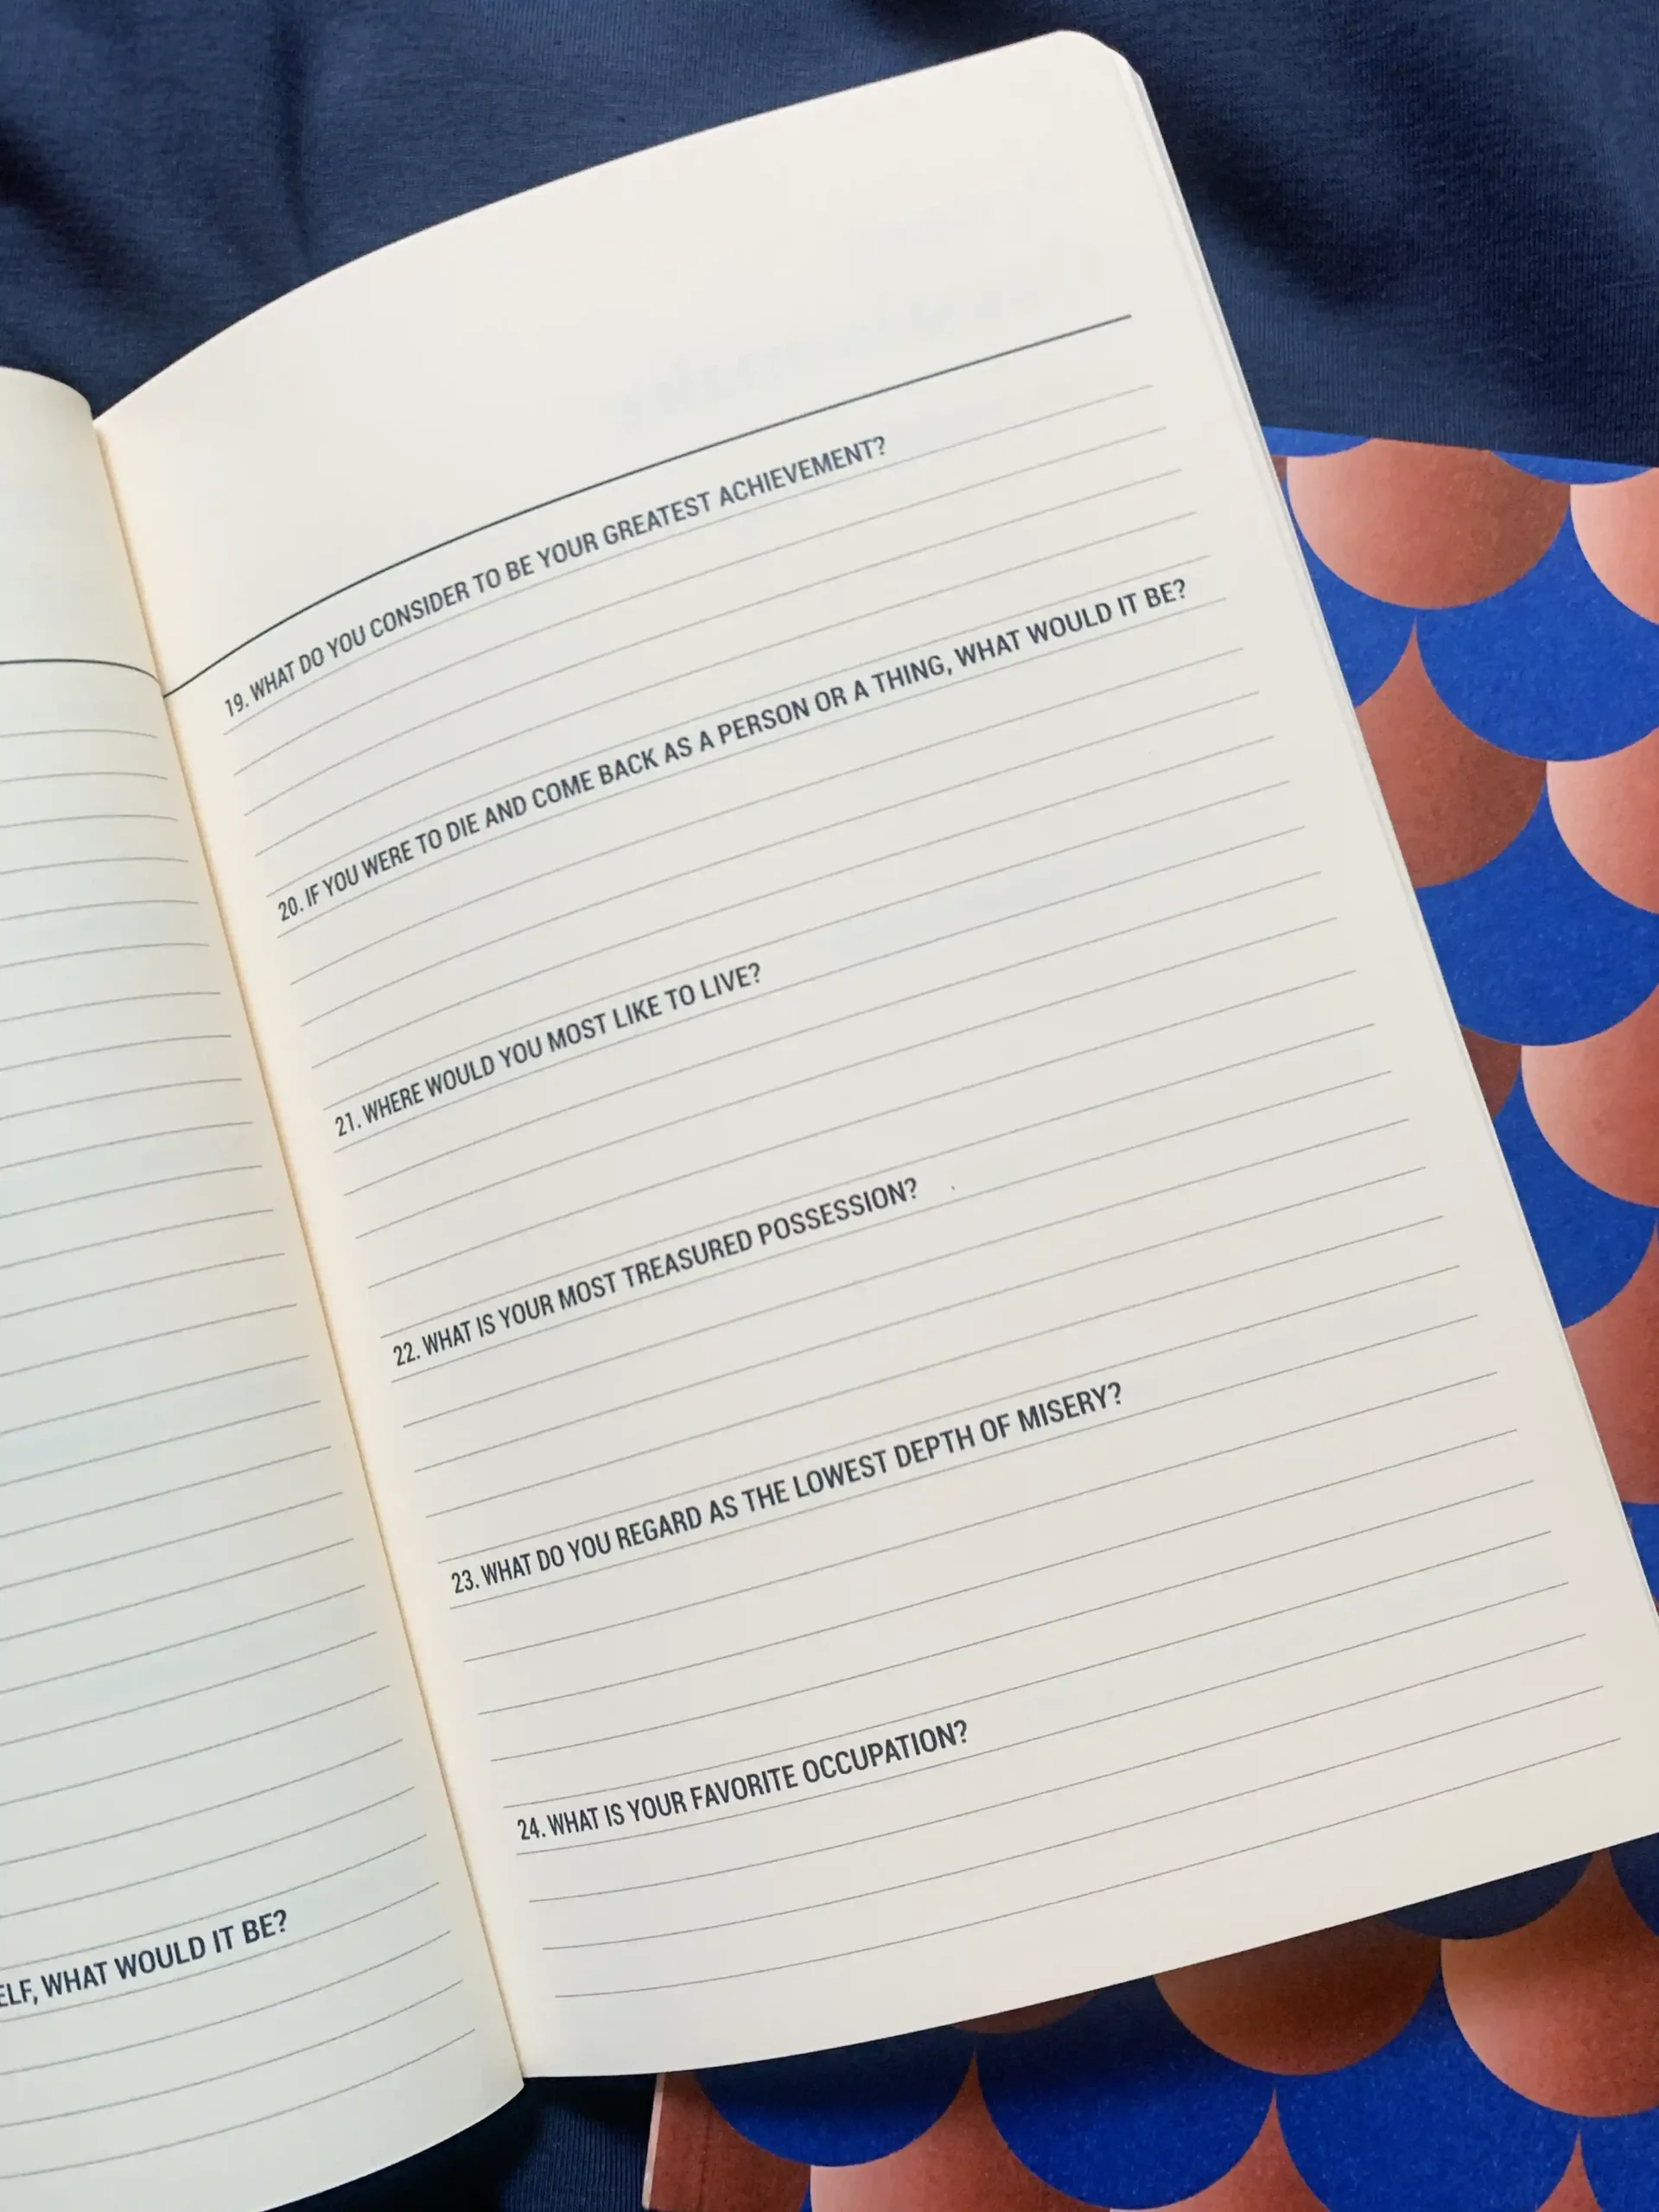 ELF, WHAT WOULD IT BE?
19. WHAT DO YOU CONSIDER TO BE YOUR GREATEST ACHIEVEMENT?
20. IF YOU WERE TO DIE AND COME BACK AS A PERSON OR A THING, WHAT WOULD IT BE?
21. WHERE WOULD YOU MOST LIKE TO LIVE?
22. WHAT IS YOUR MOST TREASURED POSSESSION?
23. WHAT DO YOU REGARD AS THE LOWEST DEPTH OF MISERY?
24. WHAT IS YOUR FAVORITE OCCUPATION?